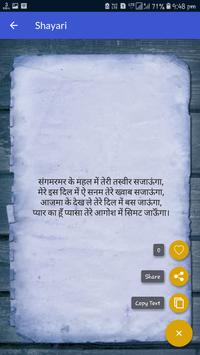 21% 4:48 pm
Shayari
संगमरमर के महल में तेरी तस्वीर सजाऊंगा,
मेरे इस दिल में ऐ सनम तेरे ख्वाब सजाऊंगा,
आजमा के देख ले तेरे दिल में बस जाऊंगा,
प्यार का हूँ प्यासा तेरे आगोश में सिमट जाऊँगा।
0
Share
Copy Text